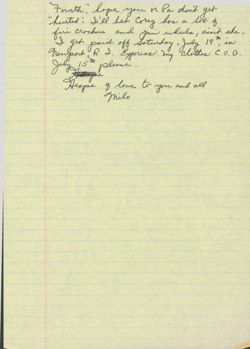 Fourth" hope you or Pa don't get
"busted". I'll bet Corey has a lot of
fire crackers and pin wheels, ain't she.
I get paid off Saturday, July 19th, in
Newport, R I. Express my clothes C.O.D.
July 15th please.
Heaps of love to you and all
Milo